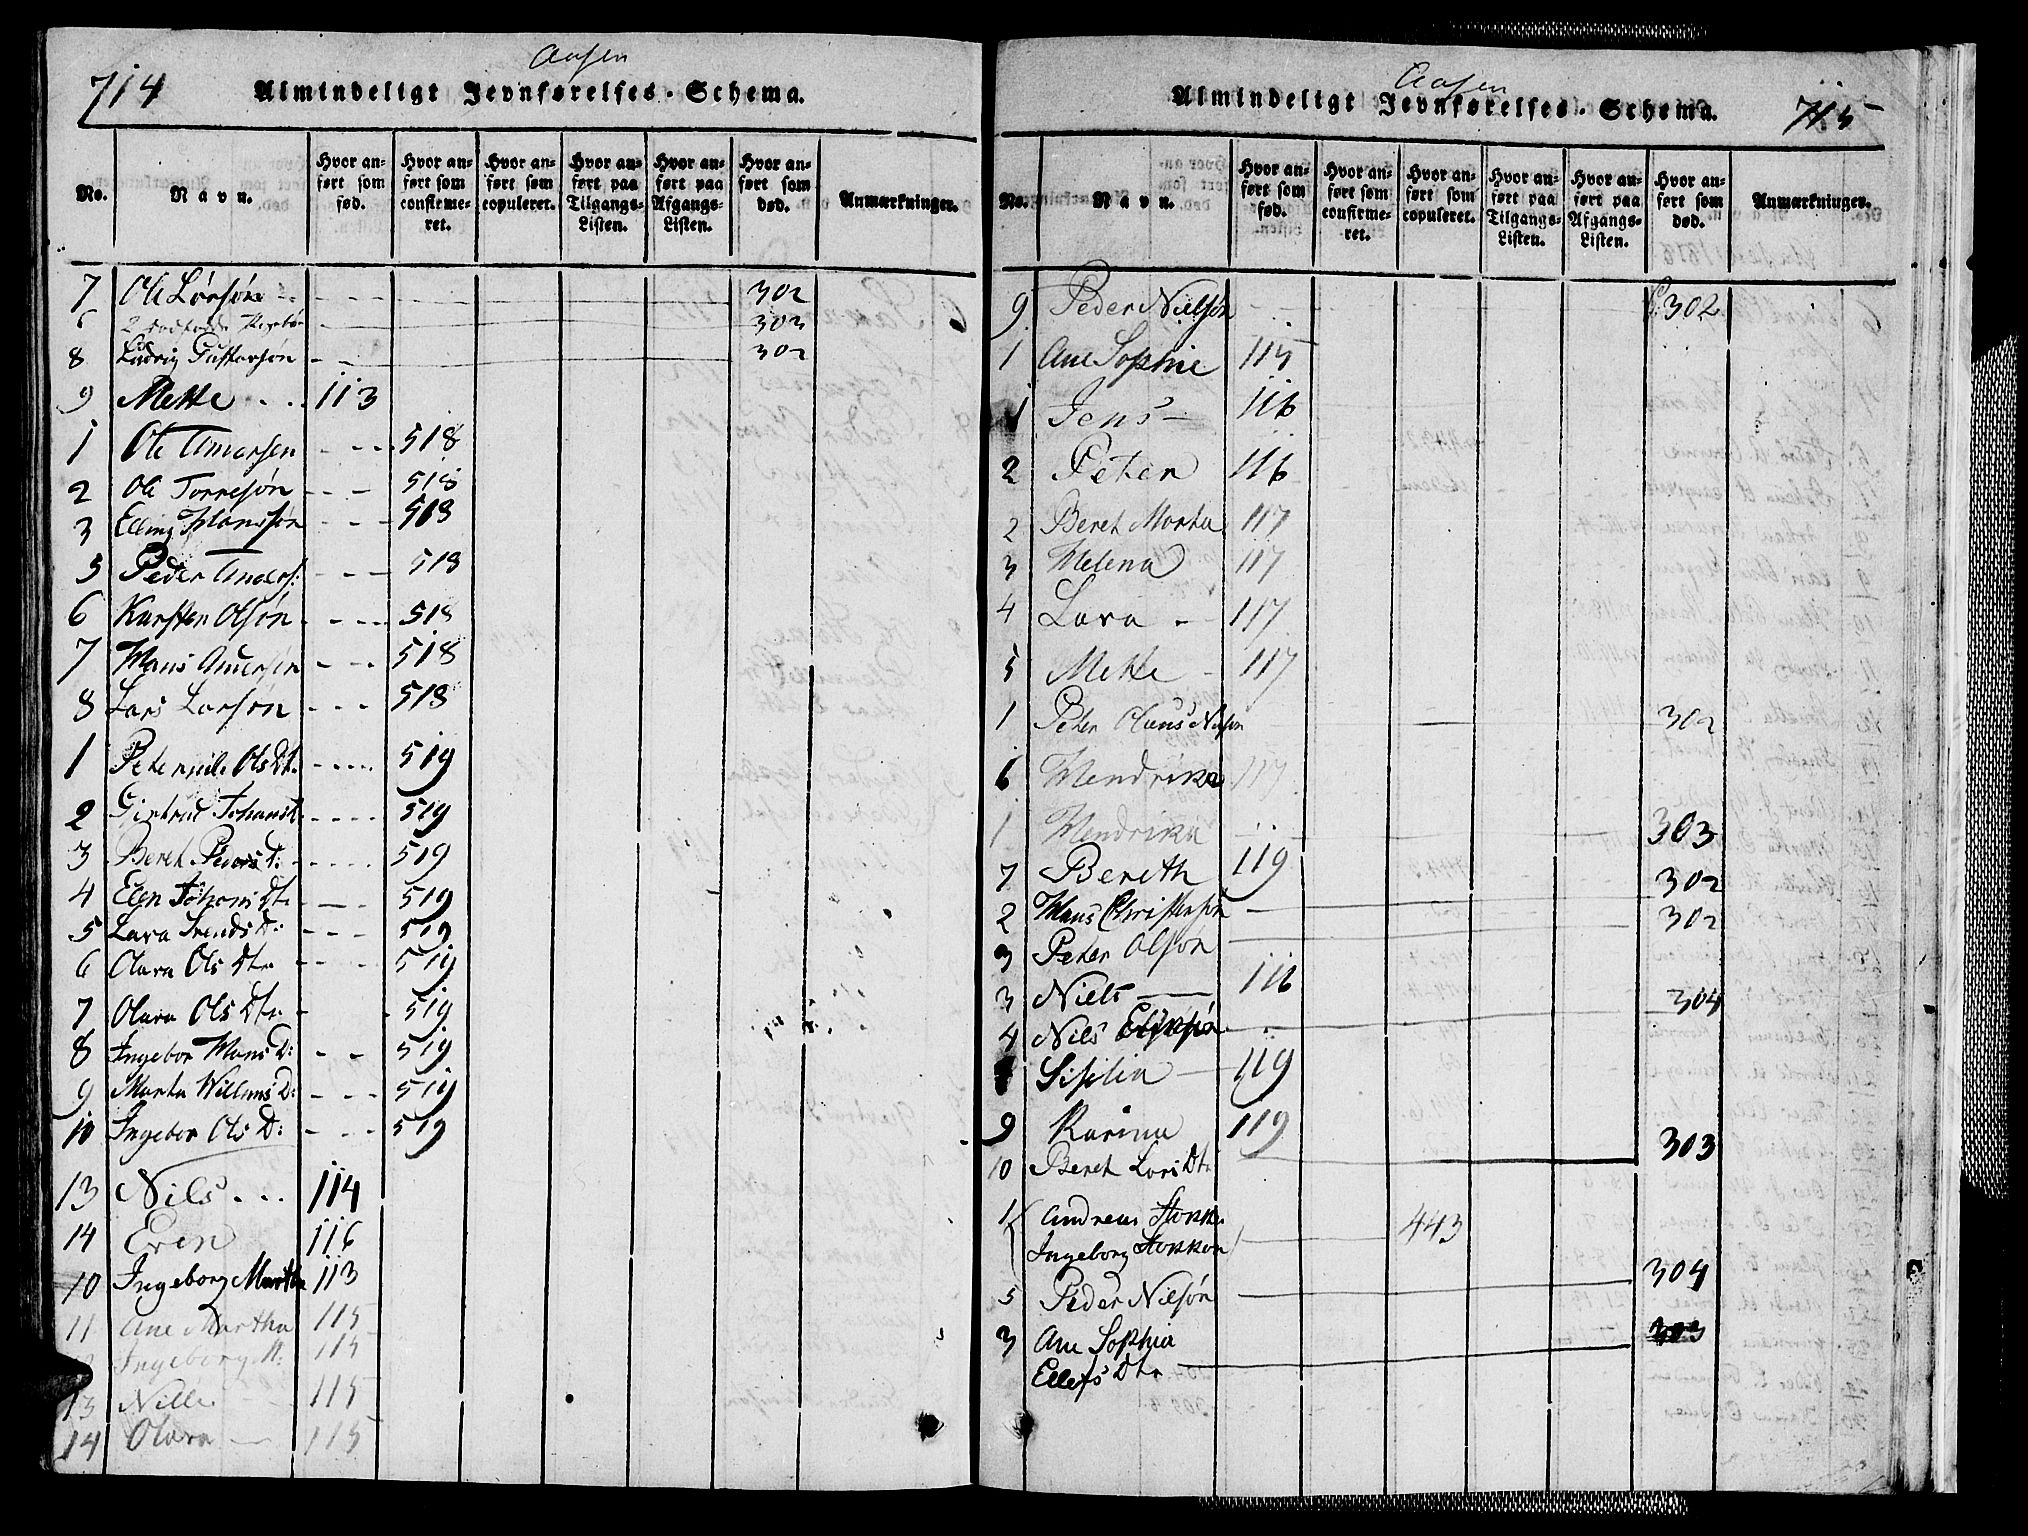 714
Aasen
Almindeligt Jevnførelses-Schema.
No.
Navn.
Hvor anført som fød.
Hvor anført som confirmeret.
Hvor anført som copuleret.
Hvor anført paa Tilgangs-Listen.
Hvor anført paa Afgangs-Listen.
Hvor anført som død.
Anmærkninger.
7 Ole Larsøn 302
302
8 Ludvig Gustavsøn 302
9 Mette 113
1 Ole Andersen 518
2 Ole Torresøn 518
3 Elling Hansson 518
5 Peder Anders: 518
6 Karsten Olsøn 518
7 Hans Andersøn 518
8 Lars Larsøn 518
1 Peternille Ols Dt. 519
2 Giertrud Johansd. 519
3 Beret Peders d: 519
4 Elen Johans Dtr 519
5 Lava Svends D: 519
6 Olava Ols Dtr 519
7 Olava Ols Dtr 519
8 Ingebor Hans D: 519
9 Marta Willums D: 519
10 Ingebor Ols D: 519
13 Nils 114
14 Even 116
10 Ingeborg Martha 113
11 Ane Martha 115
12 Ingeborg M: 115
13 Nille 115
14 Olava 115
Aasen
Almindeligt Jevnførelses-Schema.
715
No.
Navn.
Hvor anført som fød.
Hvor anført som confirmeret.
Hvor anført som copuleret.
Hvor anført paa Tilgangs-Listen.
Hvor anført paa Afgangs-Listen.
Hvor anført som død.
Anmærkninger.
9 Peder Nielsøn 302
1 Ane Sophie 115
1 Jens 116
2 Peter 116
2 Beret Marta 117
3 Helena 117
4 Lava 117
5 Mette 117
1 Peter Olaus Nilsøn 302
6 Hendrika 117
1 Hendrika 303
7 Bereth 119
2 Hans Christensøn 302
3 Peter Olsøn 302
3 Niels 116
4 Nils 304
Sisilia 119
9 Karina 119
10 Beret Lars Dtr 303
1 Andreas Stokke
Ingeborg Stokkan 443
5 Peder Nilsøn 304
3 Ane Sophia
Ellefs Dtr 303